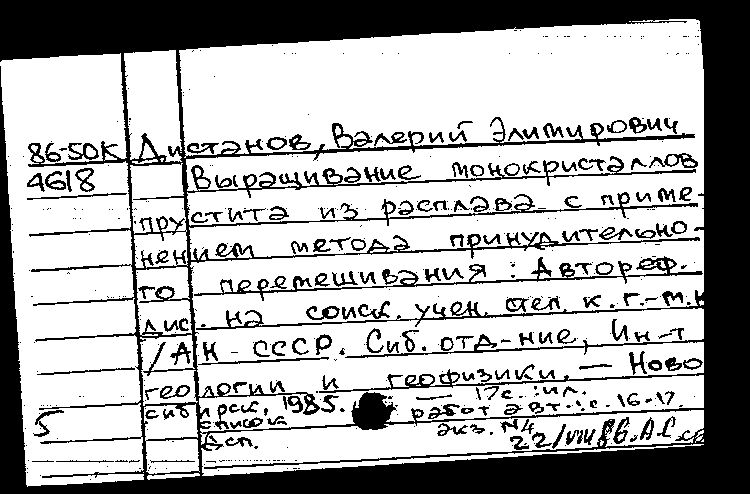 86-50К Дистанов, Валерий Элимирович
4618 Выращивание монокристаллов
прустита из расплава с приме-
нением метода принудительно-
го перемешивания : Автореф.
дис. на соиск. учен. степ. к.г.-м.н
/АН СССР. Сиб. отд-ние, Ин-т
геологии и геофизики. — Ново
сибирск, 1985. — 17с. : ил.
5 список работ авт.: с. 16-17.
Бсп. экз. №4
22/VIII 86. А.С.